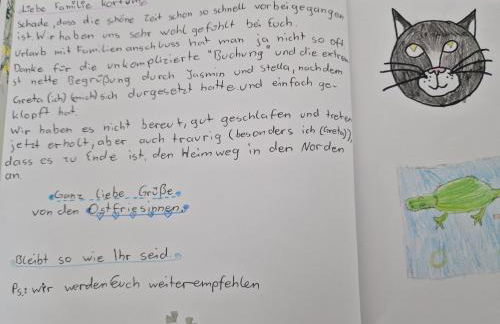 Liebe Familie
schade, dass die schöne Zeit schon so schnell vorbeigegangen
ist. Wir haben uns sehr wohl gefühlt bei Euch.
Urlaub mit Familienanschluss hat man ja nicht so oft.
Danke für die unkomplizierte "Buchung" und die extrem
nette Begrüßung durch Jasmin und Stella, nachdem
Greta (ich) sich durgesetzt hatte und einfach ge-
klopft hat.
Wir haben es nicht bereut, gut geschlafen und treten
jetzt erholt, aber auch traurig (besonders ich (Greta)),
dass es zu Ende ist, den Heimweg in den Norden
an.
Ganz liebe Grüße
von den Ostfriesinnen.
Bleibt so wie Ihr seid.
Ps.: wir werden Euch weiterempfehlen